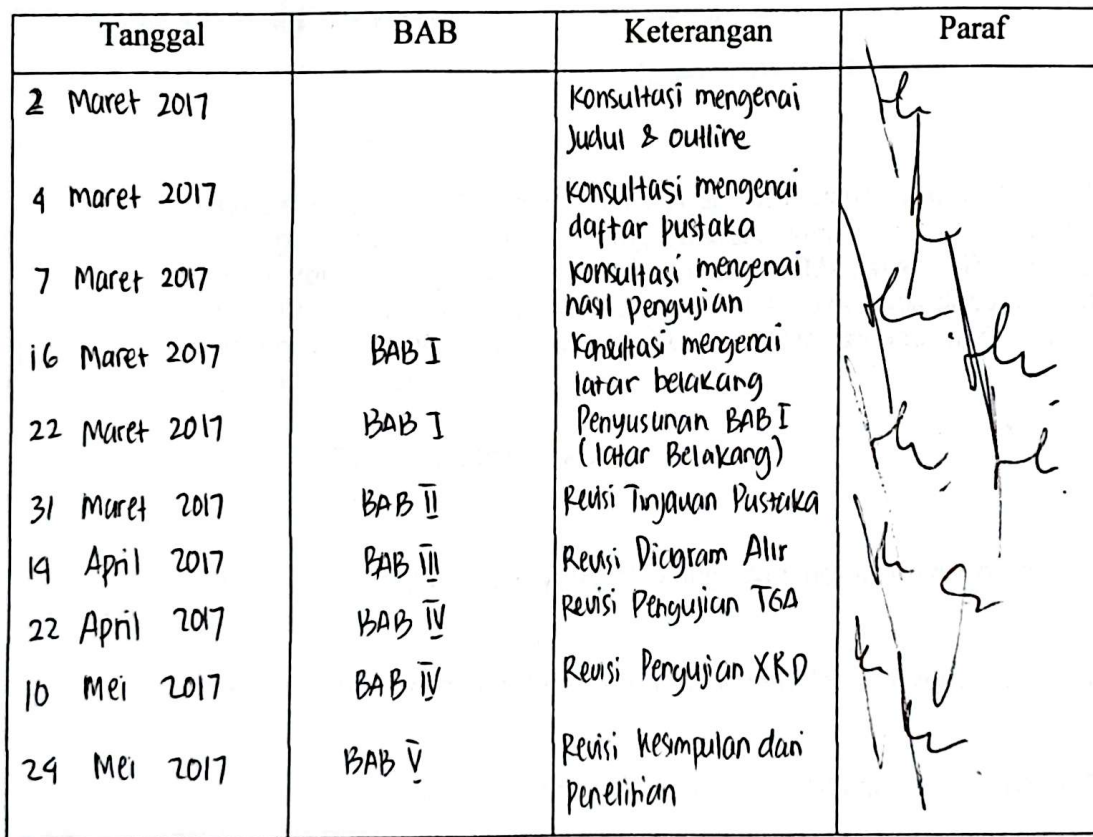 Tanggal BAB Keterangan Paraf
2 Maret 2017 Konsultasi mengenai
Judul & outline
4 Maret 2017 Konsultasi mengenai
daftar pustaka
7 Maret 2017 Konsultasi mengenai
hasil pengujian
16 Maret 2017 BAB I Konsultasi mengenai
latar belakang
22 Maret 2017 BAB I Penyusunan BAB I
(latar Belakang)
31 Maret 2017 BAB II Revisi Tinjauan Pustaka
19 April 2017 BAB III Revisi Diagram Alir
22 April 2017 BAB IV Revisi Pengujian TGA
10 Mei 2017 BAB IV Revisi Pengujian XRD
24 Mei 2017 BAB V Revisi Kesimpulan dari
Penelitian